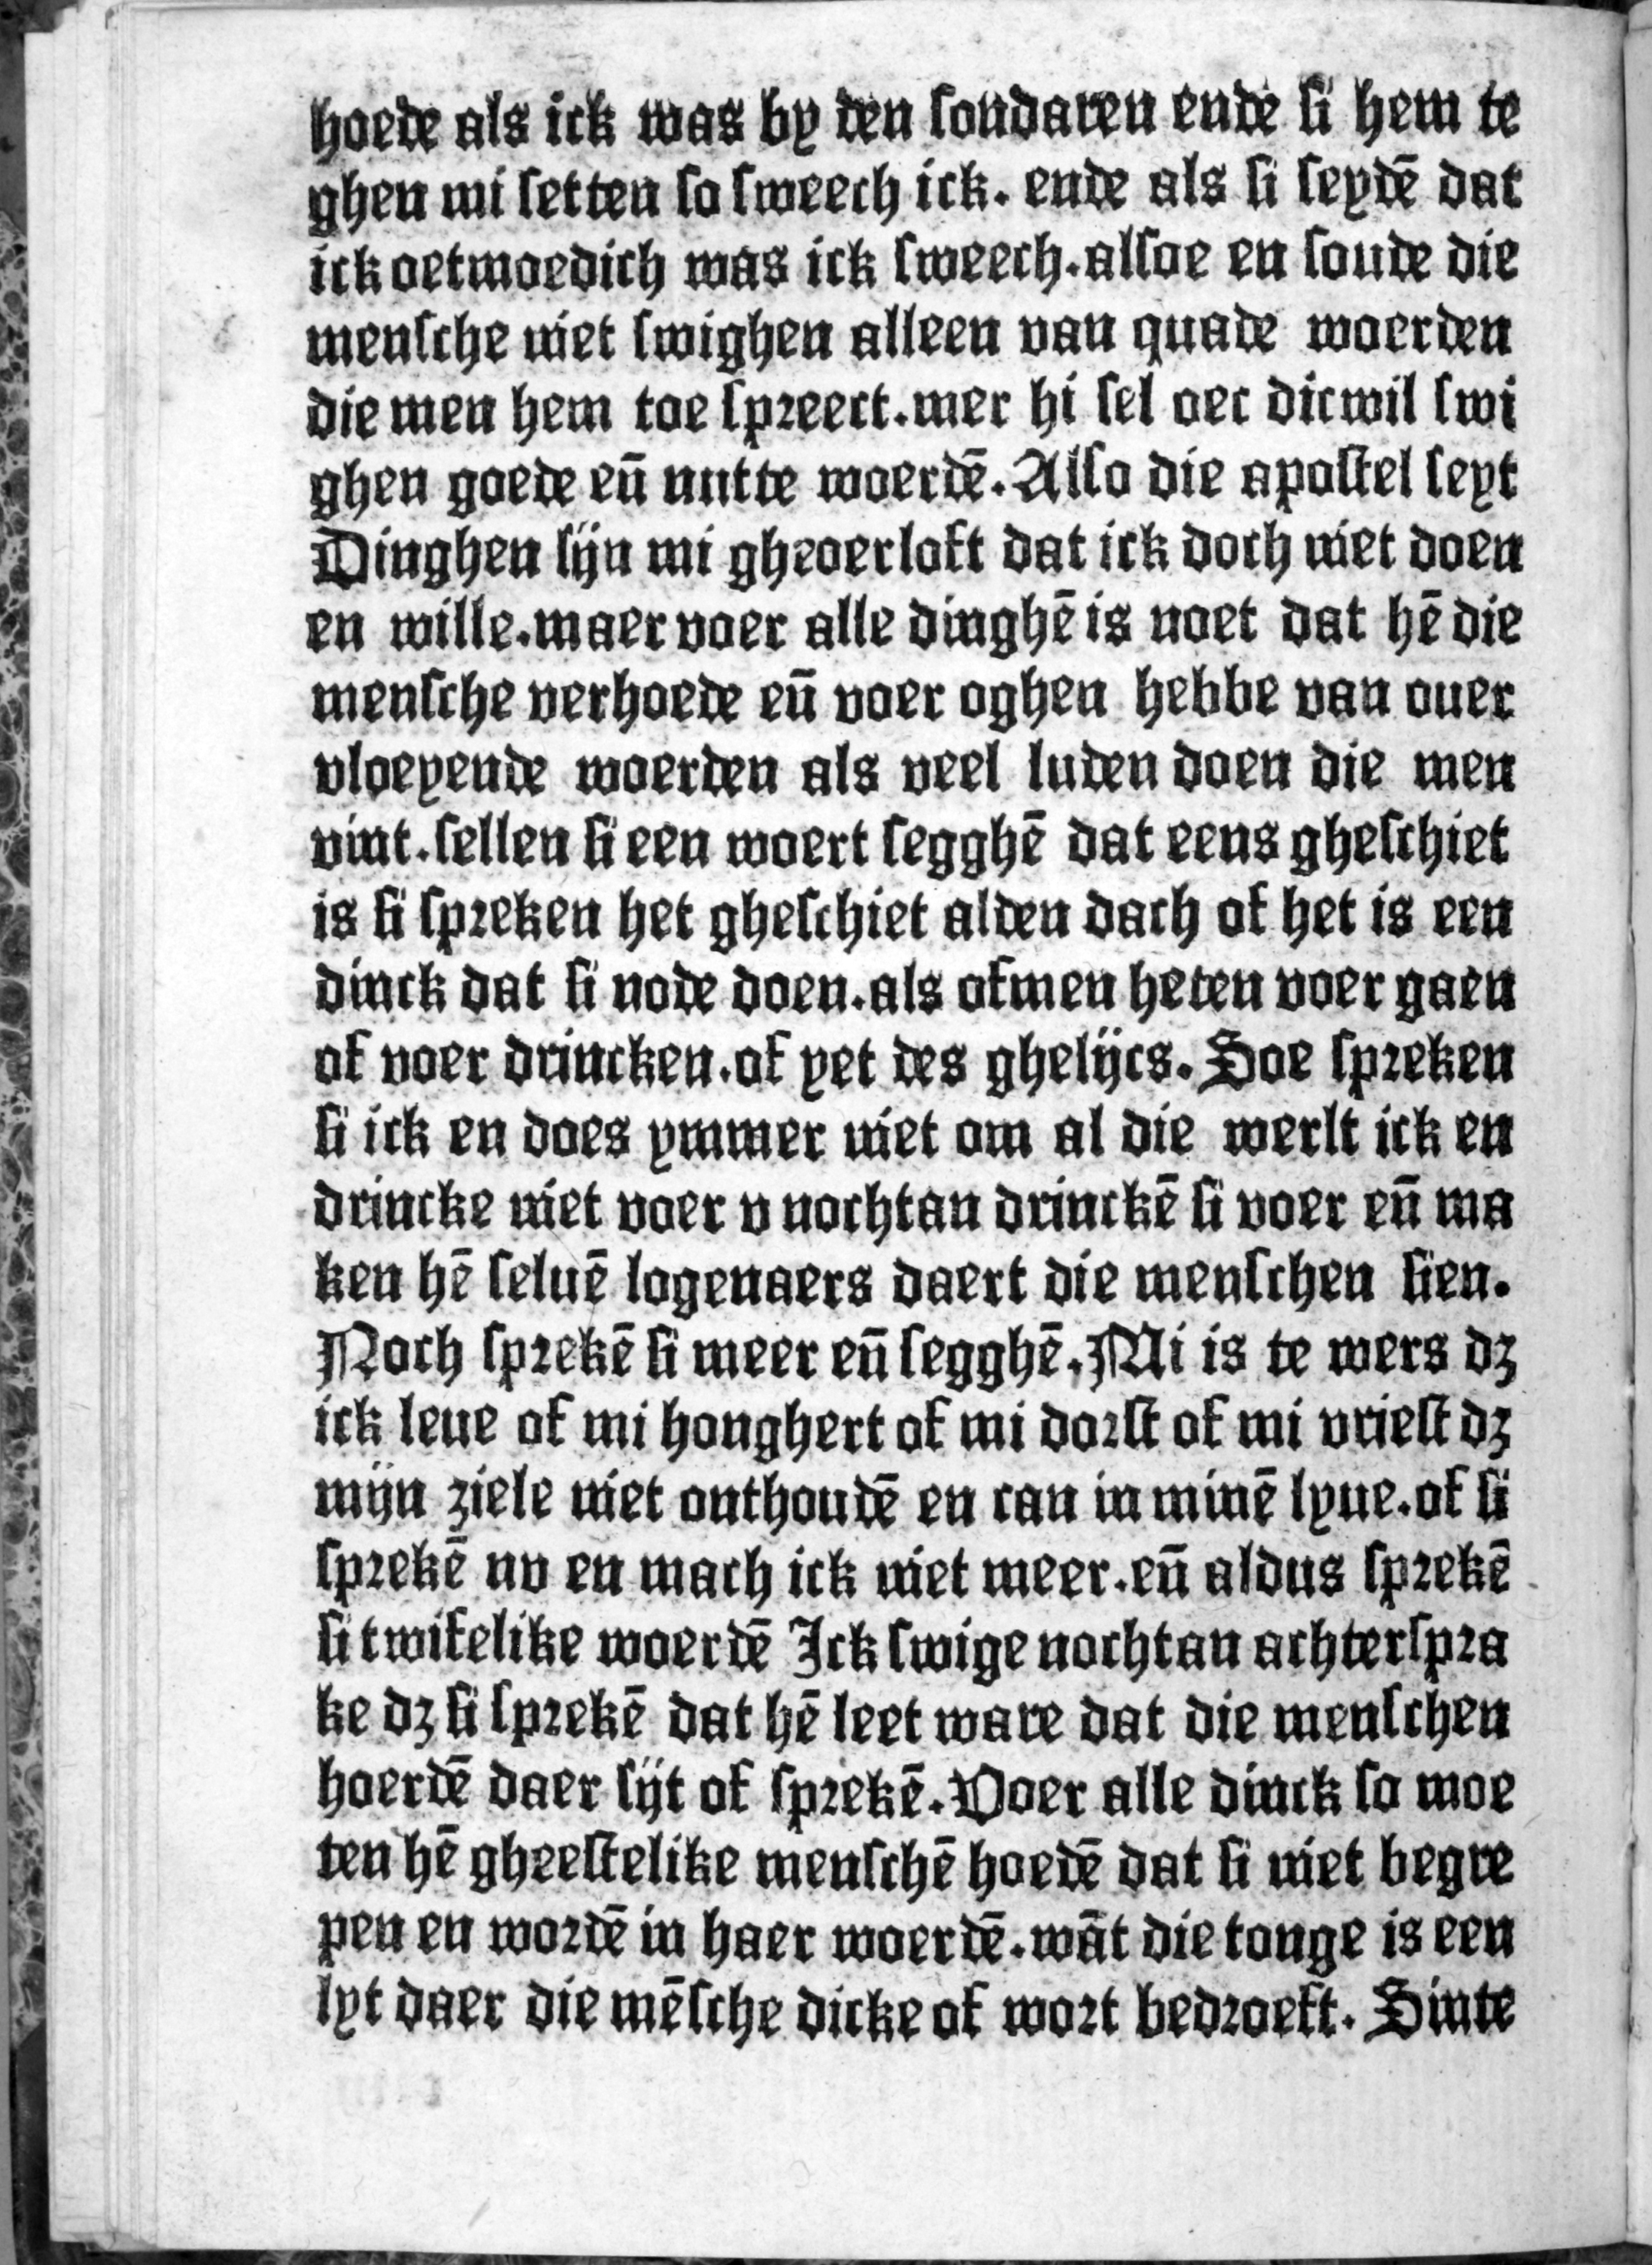 hoede als ick was by den sondaren ende si hem te
ghen mi setten so sweech ick. ende als si seydē dat
ick oetmoedich was ick sweech. alsoe en soude die
mensche niet swighen alleen van quade woerden
die men hem toe spreect. mer hi sel oec dicwil swi
ghen goede eñ nutte woerdē. Also die apostel seyt
Dinghen sijn mi gheoerloft dat ick doch niet doen
en wille. maer voer alle dinghē is noet dat hē die
mensche verhoede eñ voer oghen hebbe van ouer
vloeyende woerden als veel luden doen die men
vint. sellen si een woert segghē dat eens gheschiet
is si spreken het gheschiet alden dach of het is een
dinck dat si node doen. als ofmen heten voer gaen
of voer drincken. of yet des ghelijcs. Soe spreken
si ick en does ymmer niet om al die werlt ick en
drincke niet voer v nochtan drinckē si voer eñ ma
ken hē seluē logenaers daert die menschen sien.
Noch sprekē si meer eñ segghē. Mi is te wers dꝫ
ick leue of mi honghert of mi dorst of mi vriest dꝫ
mijn ziele niet onthoudē en can in minē lyue. of si
sprekē nv en mach ick niet meer. eñ aldus sprekē
si twifelike woerdē Ick swige nochtan achterspra
ke dꝫ si sprekē dat hē leet ware dat die menschen
hoerdē daer sijt of sprekē. Voer alle dinck so moe
ten hē gheestelike menschē hoedē dat si niet begre
pen en wordē in haer woerdē. wāt die tonge is een
lyt daer die mēsche dicke of wort bedroeft. Sinte